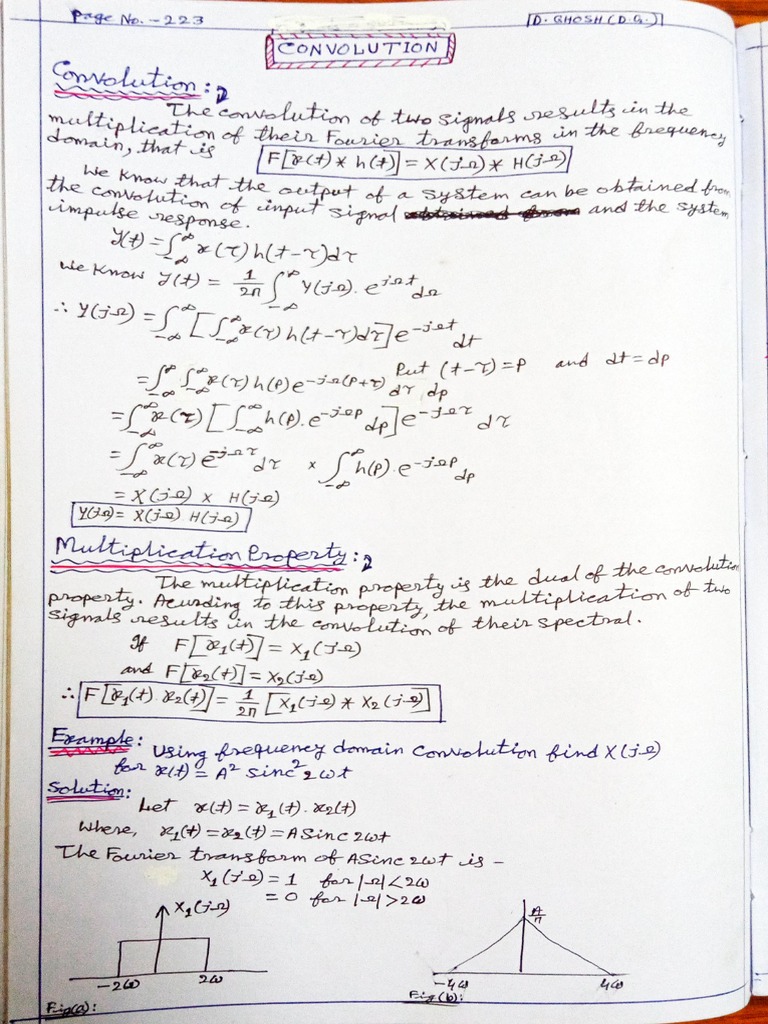 Page No. - 223
D. GHOSH (D.G.)
CONVOLUTION
Convolution:
The convolution of two signals results in the
multiplication of their Fourier transforms in the frequency
domain, that is F[x(t) * h(t)] = X(jΩ) * H(jΩ)
We know that the output of a system can be obtained from
the convolution of input signal and the system
impulse response.
y(t) = ∫_{-∞}^{∞} x(τ) h(t-τ) dτ
We know y(t) = 1/2π ∫_{-∞}^{∞} Y(jΩ). e^{jΩt} dΩ
∴ Y(jΩ) = ∫_{-∞}^{∞} [∫_{-∞}^{∞} x(τ) h(t-τ) dτ] e^{-jΩt} dt
Put (t-τ) = p and dt = dp
= ∫_{-∞}^{∞} ∫_{-∞}^{∞} x(τ) h(p) e^{-jΩ(p+τ)} dτ dp
= ∫_{-∞}^{∞} x(τ) [∫_{-∞}^{∞} h(p). e^{-jΩp} dp] e^{-jΩτ} dτ
= ∫_{-∞}^{∞} x(τ) e^{-jΩτ} dτ × ∫_{-∞}^{∞} h(p). e^{-jΩp} dp
= X(jΩ) × H(jΩ)
Y(jΩ) = X(jΩ) H(jΩ)
Multiplication Property:
The multiplication property is the dual of the convolution
property. Acurding to this property, the multiplication of two
signals results in the convolution of their spectral.
If F[x₁(t)] = X₁(jΩ)
and F[x₂(t)] = X₂(jΩ)
∴ F[x₁(t). x₂(t)] = 1/2π [X₁(jΩ) * X₂(jΩ)]
Example: Using frequency domain convolution find X(jΩ)
for x(t) = A² sinc² 2ωt
Solution:
Let x(t) = x₁(t). x₂(t)
Where, x₁(t) = x₂(t) = A Sinc 2ωt
The Fourier transform of A Sinc 2ωt is –
X₁(jΩ) = 1 for |Ω| < 2ω
= 0 for |Ω| > 2ω
X₁(jΩ)
-2ω 2ω
Fig(a):
A/π
-4ω 4ω
Fig(b):